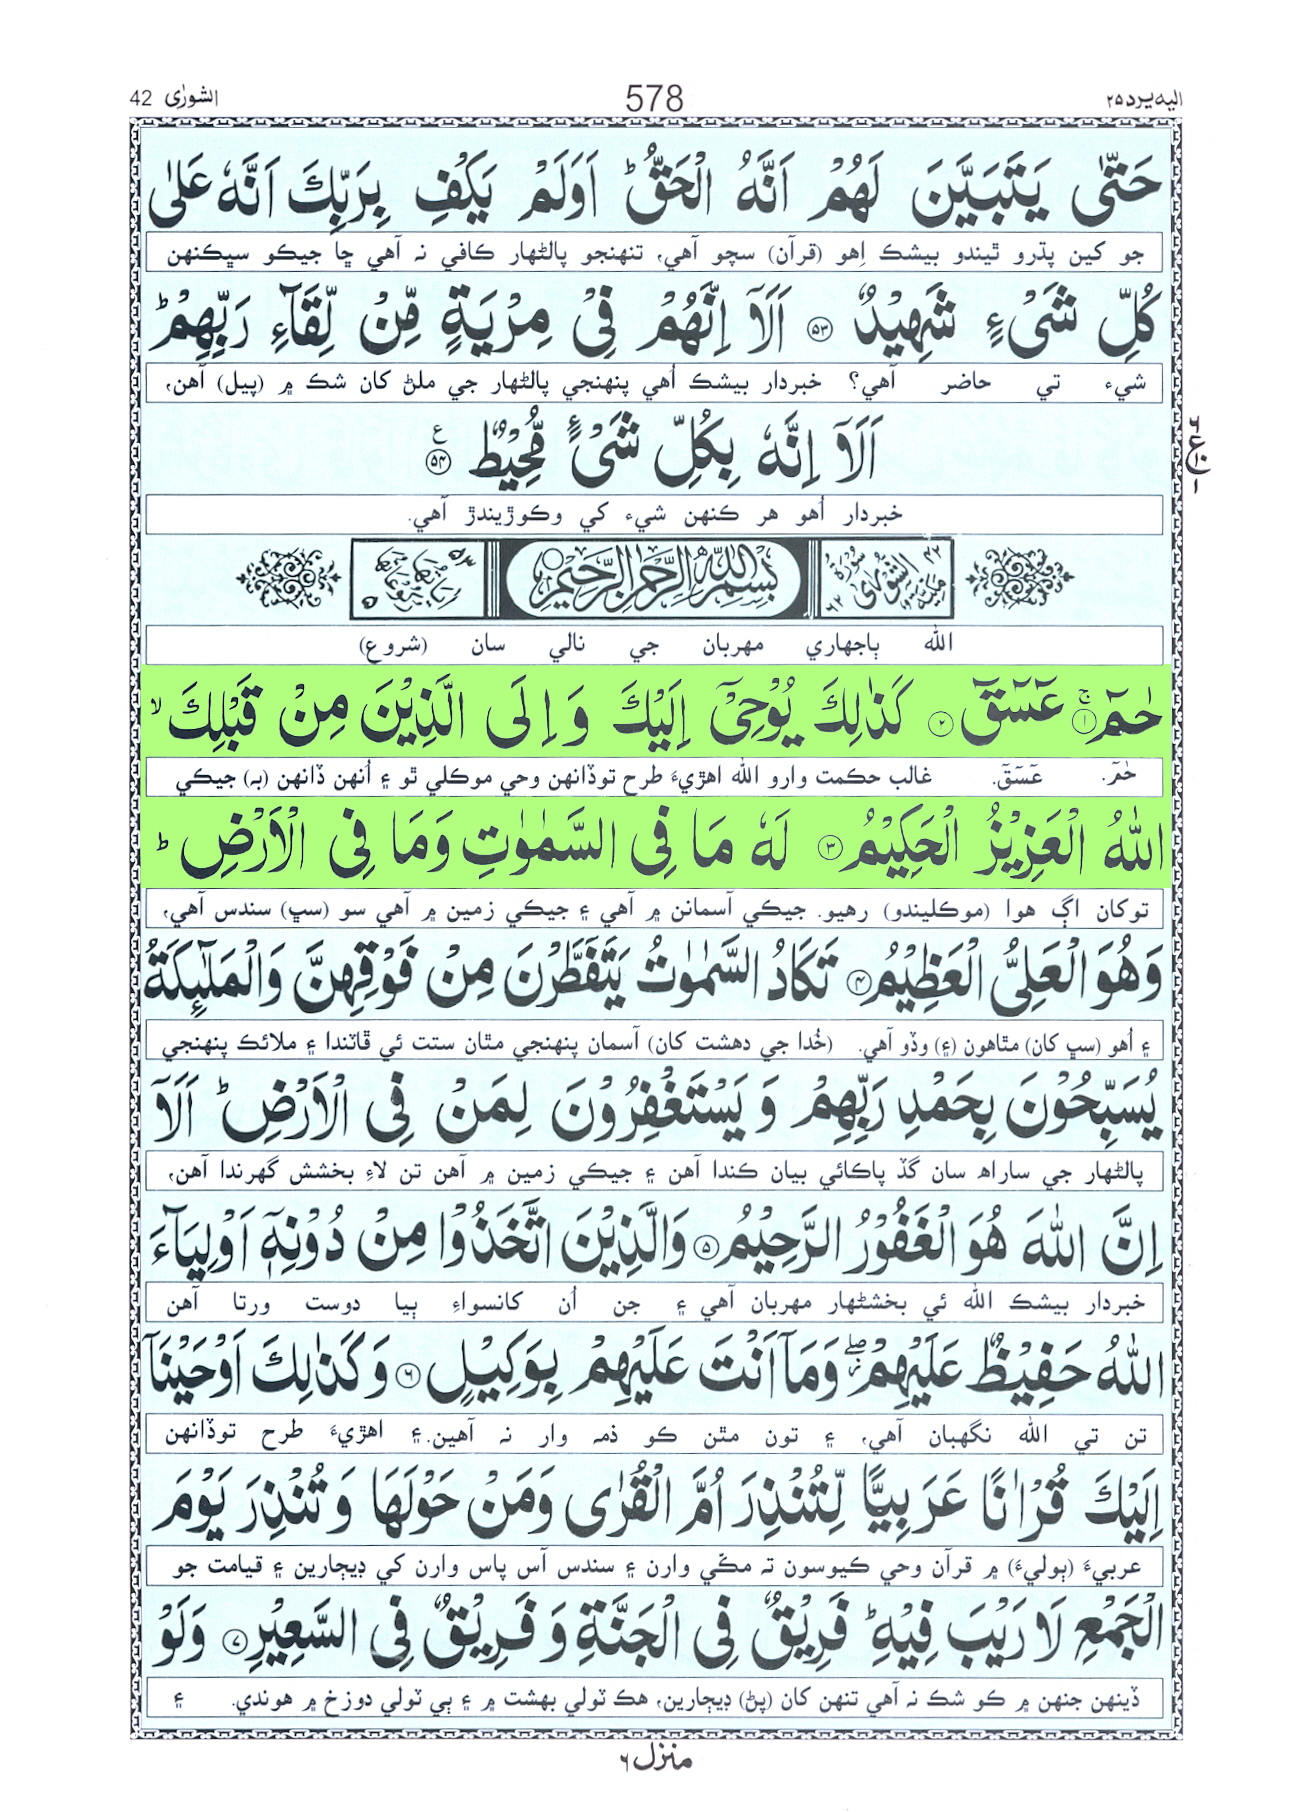 الشورٰی 42
578
الیه یرد ۲۵
حَتّٰی یَتَبَیَّنَ لَهُمْ اَنَّهُ الْحَقُّ ؕ اَوَلَمْ یَكْفِ بِرَبِّكَ اَنَّهٗ عَلٰی
جو کين پڌرو ٿيندو بيشڪ اِهو (قرآن) سچو آهي، تنهنجو پالڻهار ڪافي نہ آهي ڇا جيڪو سڀڪنهن
كُلِّ شَیْءٍ شَهِیْدٌ ﴿۵۳﴾ اَلَاۤ اِنَّهُمْ فِیْ مِرْیَةٍ مِّنْ لِّقَآءِ رَبِّهِمْ ؕ
شيء تي حاضر آهي؟ خبردار بيشڪ اُهي پنهنجي پالڻهار جي ملڻ کان شڪ ۾ (پيل) آهن،
اَلَاۤ اِنَّهٗ بِكُلِّ شَیْءٍ مُّحِیْطٌ ﴿۵۴﴾ ع
خبردار اُهو هر ڪنهن شيء کي وڪوڙيندڙ آهي.
بِسْمِ اللّٰهِ الرَّحْمٰنِ الرَّحِیْمِ
الله ٻاجهاري مهربان جي نالي سان (شروع)
حٰمٓ ﴿۱﴾ ج عٓسٓقٓ ﴿۲﴾ كَذٰلِكَ یُوْحِیْۤ اِلَیْكَ وَ اِلَی الَّذِیْنَ مِنْ قَبْلِكَ ۙ
حٰمٓ. عٓسٓقٓ. غالب حڪمت وارو الله اهڙيءَ طرح توڏانهن وحي موڪلي ٿو ۽ اُنهن ڏانهن (بہ) جيڪي
اللّٰهُ الْعَزِیْزُ الْحَكِیْمُ ﴿۳﴾ لَهٗ مَا فِی السَّمٰوٰتِ وَمَا فِی الْاَرْضِ ؕ
توکان اڳ هوا (موڪليندو) رهيو. جيڪي آسمانن ۾ آهي ۽ جيڪي زمين ۾ آهي سو (سڀ) سندس آهي،
وَهُوَ الْعَلِیُّ الْعَظِیْمُ ﴿۴﴾ تَكَادُ السَّمٰوٰتُ یَتَفَطَّرْنَ مِنْ فَوْقِهِنَّ وَالْمَلٰٓئِكَةُ
۽ اُهو (سڀ کان) مٿاهون (۽) وڏو آهي. (خُدا جي دهشت کان) آسمان پنهنجي مٿان ستت ئي ڦاٽندا ۽ ملائڪ پنهنجي
یُسَبِّحُوْنَ بِحَمْدِ رَبِّهِمْ وَ یَسْتَغْفِرُوْنَ لِمَنْ فِی الْاَرْضِ ؕ اَلَاۤ
پالڻهار جي ساراھ سان گڏ پاڪائي بيان ڪندا آهن ۽ جيڪي زمين ۾ آهن تن لاءِ بخشش گهرندا آهن،
اِنَّ اللّٰهَ هُوَ الْغَفُوْرُ الرَّحِیْمُ ﴿۵﴾ وَالَّذِیْنَ اتَّخَذُوْا مِنْ دُوْنِهٖۤ اَوْلِیَآءَ
خبردار بيشڪ الله ئي بخشڻهار مهربان آهي ۽ جن اُن کانسواءِ ٻيا دوست ورتا آهن
اللّٰهُ حَفِیْظٌ عَلَیْهِمْ ۖ وَمَاۤ اَنْتَ عَلَیْهِمْ بِوَكِیْلٍ ﴿۶﴾ وَ كَذٰلِكَ اَوْحَیْنَاۤ
تن تي الله نگهبان آهي، ۽ تون مٿن ڪو ذمہ وار نہ آهين. ۽ اهڙيءَ طرح توڏانهن
اِلَیْكَ قُرْاٰنًا عَرَبِیًّا لِّتُنْذِرَ اُمَّ الْقُرٰی وَمَنْ حَوْلَهَا وَ تُنْذِرَ یَوْمَ
عربيءَ (ٻوليءَ) ۾ قرآن وحي ڪيوسون تہ مڪّي وارن ۽ سندس آس پاس وارن کي ڊيڄارين ۽ قيامت جو
الْجَمْعِ لَا رَیْبَ فِیْهِ ؕ فَرِیْقٌ فِی الْجَنَّةِ وَ فَرِیْقٌ فِی السَّعِیْرِ ﴿۷﴾ وَلَوْ
ڏينهن جنهن ۾ ڪو شڪ نہ آهي تنهن کان (پڻ) ڊيڄارين، هڪ ٽولي بهشت ۾ ۽ ٻي ٽولي دوزخ ۾ هوندي. ۽
منزل ۶